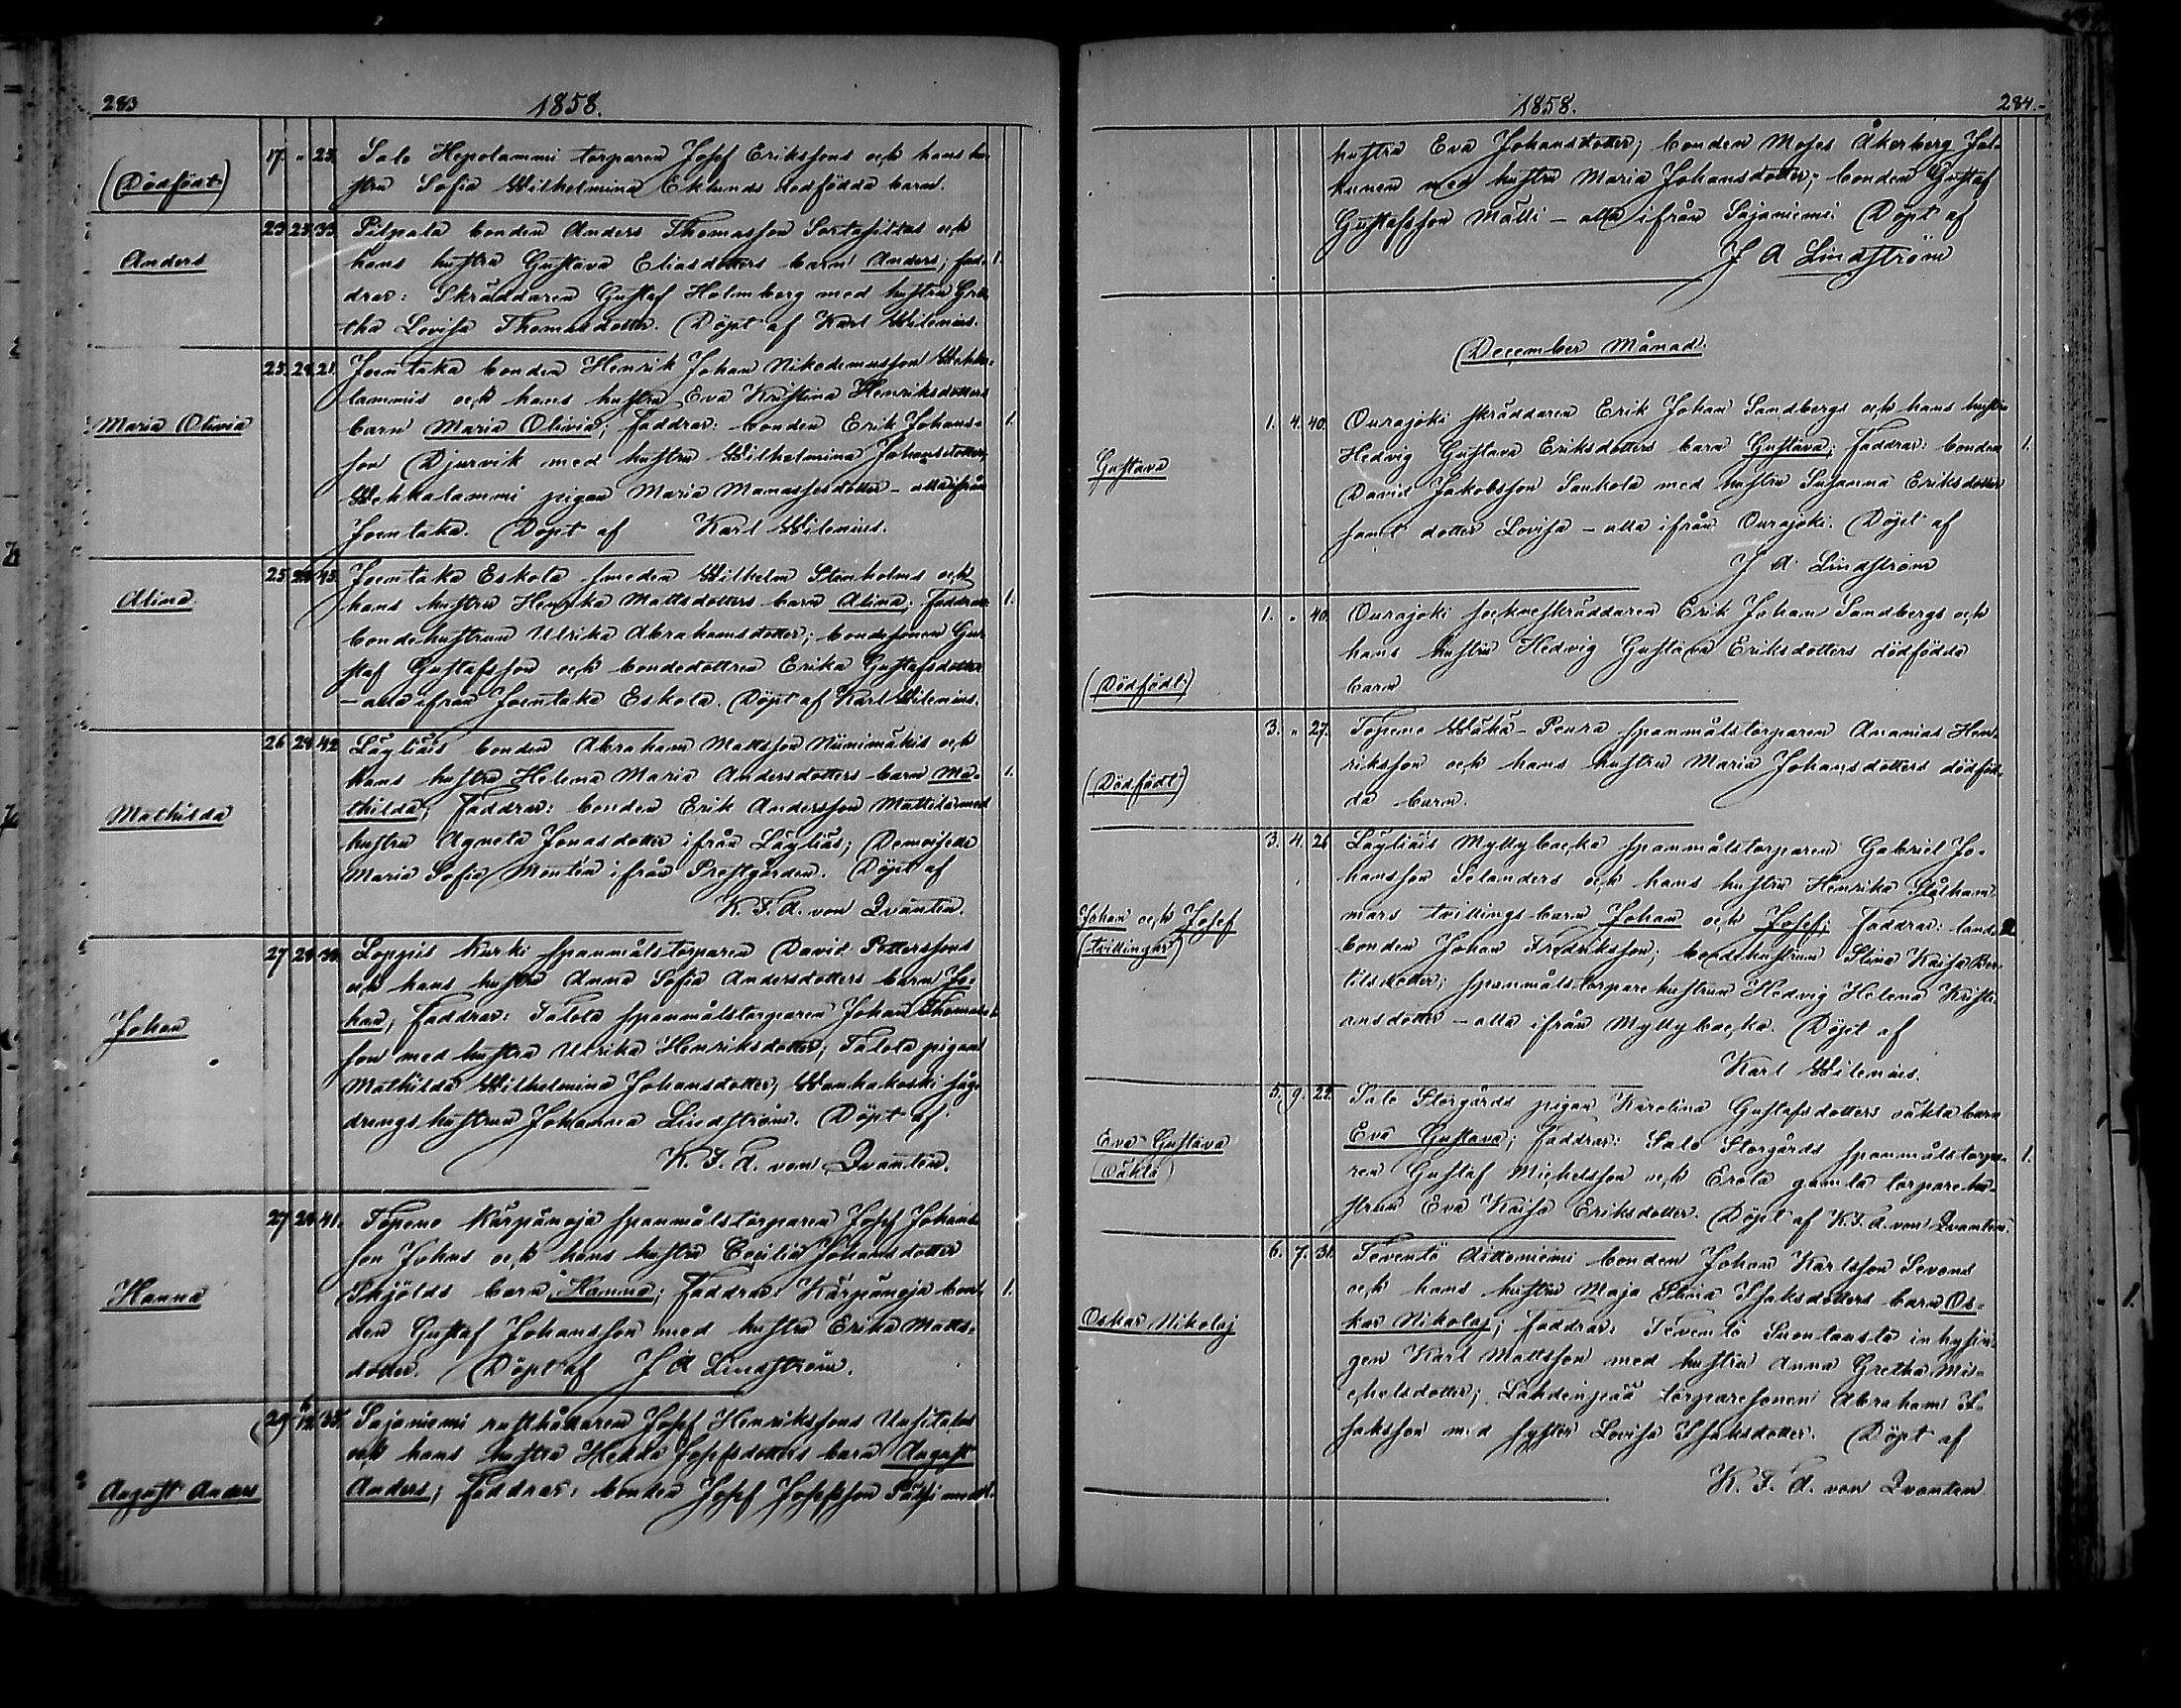 283
1858.
(Dödfödt)
17. " 23. Salo Hepolammi torparen Josef Erikssons och hans hu-
stru Sofia Wilhelmina Eklunds dödfödda barn.
Anders
23. 23. 33. Pilpala bonden Anders Thomasson Sortasillas och
hans hustru Gustava Eliasdotters barn Anders; fad- 1.
drar: Skräddaren Gustaf Holmberg med hustru Gre-
tha Lovisa Thomasdotter. Döpt af Karl Wilenius.
Maria Olivia
23. 24. 21. Joentaka bonden Henrik Johan Nikodemusson Wehka-
lammis och hans hustru Eva Kristina Henriksdotters
barn Maria Olivia; Faddrar: bonden Erik Johans- 1.
son Djurvik med hustru Wilhelmina Johansdotter,
Wehkalammi pigan Maria Manassesdotter – alla ifrån
Joentaka. Döpt af Karl Wilenius.
Alina
25. 29. 43. Joentaka Eskola smeden Wilhelm Stenholms och
hans hustru Henrika Mattsdotters barn Alina; Faddrar: 1.
bondehustrun Ulrika Abrahamsdotter; bondesonen Gu-
staf Gustafsson och bondedottren Erika Gustafsdotter
– alla ifrån Joentaka Eskola. Döpt af Karl Wilenius.
Mathilda
26 29. 42. Läyliäis bonden Abraham Mattsson Niinimäkis och
hans hustru Helena Maria Andersdotters barn Ma- 1.
thilda; Faddrar: bonden Erik Andersson Mattila med
hustru Agneta Jonasdotter ifrån Läyliäs; Demoiselle
Maria Sofia Montén ifrån Prestgården. Döpt af
K. F. A. von Qvanten.
Johan
27 29. 30. Loppis Kurki spanmålstorparen David Petterssons
och hans hustru Anna Sofia Andersdotters barn Jo-
han; Faddrar: Talola spanmålstorparen Johan Thomas- 1.
son med hustru Ulrika Henriksdotter; Talola pigan
Mathilda Wilhelmina Johansdotter; Wanhakoski såg-
drängshustrun Johanna Lindström. Döpt af
K. F. A. von Qvanten.
Hanna
27 28 41. Topeno Kärpänoja spanmålstorparen Josef Johans-
son Johns och hans hustru Cecilia Johansdotter
Skjölds barn Hanna; Faddrar: Kärpänoja bon- 1.
den Gustaf Johansson med hustru Erika Matts-
dotter. Döpt af J A Lindström.
August Anders
29 6/12. 35. Sajaniemi rusthållaren Josef Henrikssons Uusitalos
och hans hustru Hedda Josefsdotters barn August
Anders; Faddrar: bonden Josef Josefsson Pätsi med 1.
1858.
284.
hustru Eva Johansdotter; bonden Moses Åkerberg Jus-
kunen med hustru Maria Johansdotter; bonden Gustaf
Gustafsson Mälli – alla ifrån Sajaniemi. Döpt af
J A Lindström
December Månad.
Gustava
1. 4. 40. Ourajoki skräddaren Erik Johan Sandbergs och hans hustru
Hedvig Gustava Eriksdotters barn Gustava; Faddrar: bonden 1.
David Jakobsson Sauhola med hustru Susanna Eriksdotter
samt dotter Lovisa – alla ifrån Ourajoki. Döpt af
J A Lindström
(Dödfödt)
1. " 40. Ourajoki sockneskräddaren Erik Johan Sandbergs och
hans hustru Hedvig Gustava Eriksdotters dödfödda
barn
(Dödfödt)
3. " 27. Topeno Wäkä-Peura spanmålstorparen Ananias Hen-
riksson och hans hustru Maria Johansdotters dödföd-
da barn.
Johan och Josef
(tvillingar)
3. 4. 26 Läyliäis Myllybacka spanmålstorparen Gabriel Jo-
hansson Selanders och hans hustru Henrika Stålham-
mars tvillingsbarn Johan och Josef; Faddrar: land- 2
bonden Johan Fredriksson; bondehustrun Stina Kaisa Ber-
tilsdotter; spanmålstorparehustrun Hedvig Helena Kristi-
ansdotter – alla ifrån Myllybacka. Döpt af
Karl Wilenius.
Eva Gustava
(oäkta)
5. 9. 22. Salo Storgårds pigan Karolina Gustafsdotters oäkta barn
Eva Gustava; Faddrar: Salo Storgårds spanmålstorpa- 1.
ren Gustaf Michelsson och Erola gamla torparehu-
strun Eva Kaisa Eriksdotter. Döpt af K. F. A. von Qvanten.
Oskar Nikolaj
6. 7. 31. Teventö Aittoniemi bonden Johan Karlsson Sevons
och hans hustru Maja Stina Isaksdotters barn Os-
kar Nikolaj; Faddrar: Teventö Suontausta inhysin- 1.
gen Karl Mattsson med hustru Anna Gretha Mi-
chelsdotter; Lahdenpää torparesonen Abraham I-
saksson med syster Lovisa Isaksdotter. Döpt af
K. F. A. von Qvanten